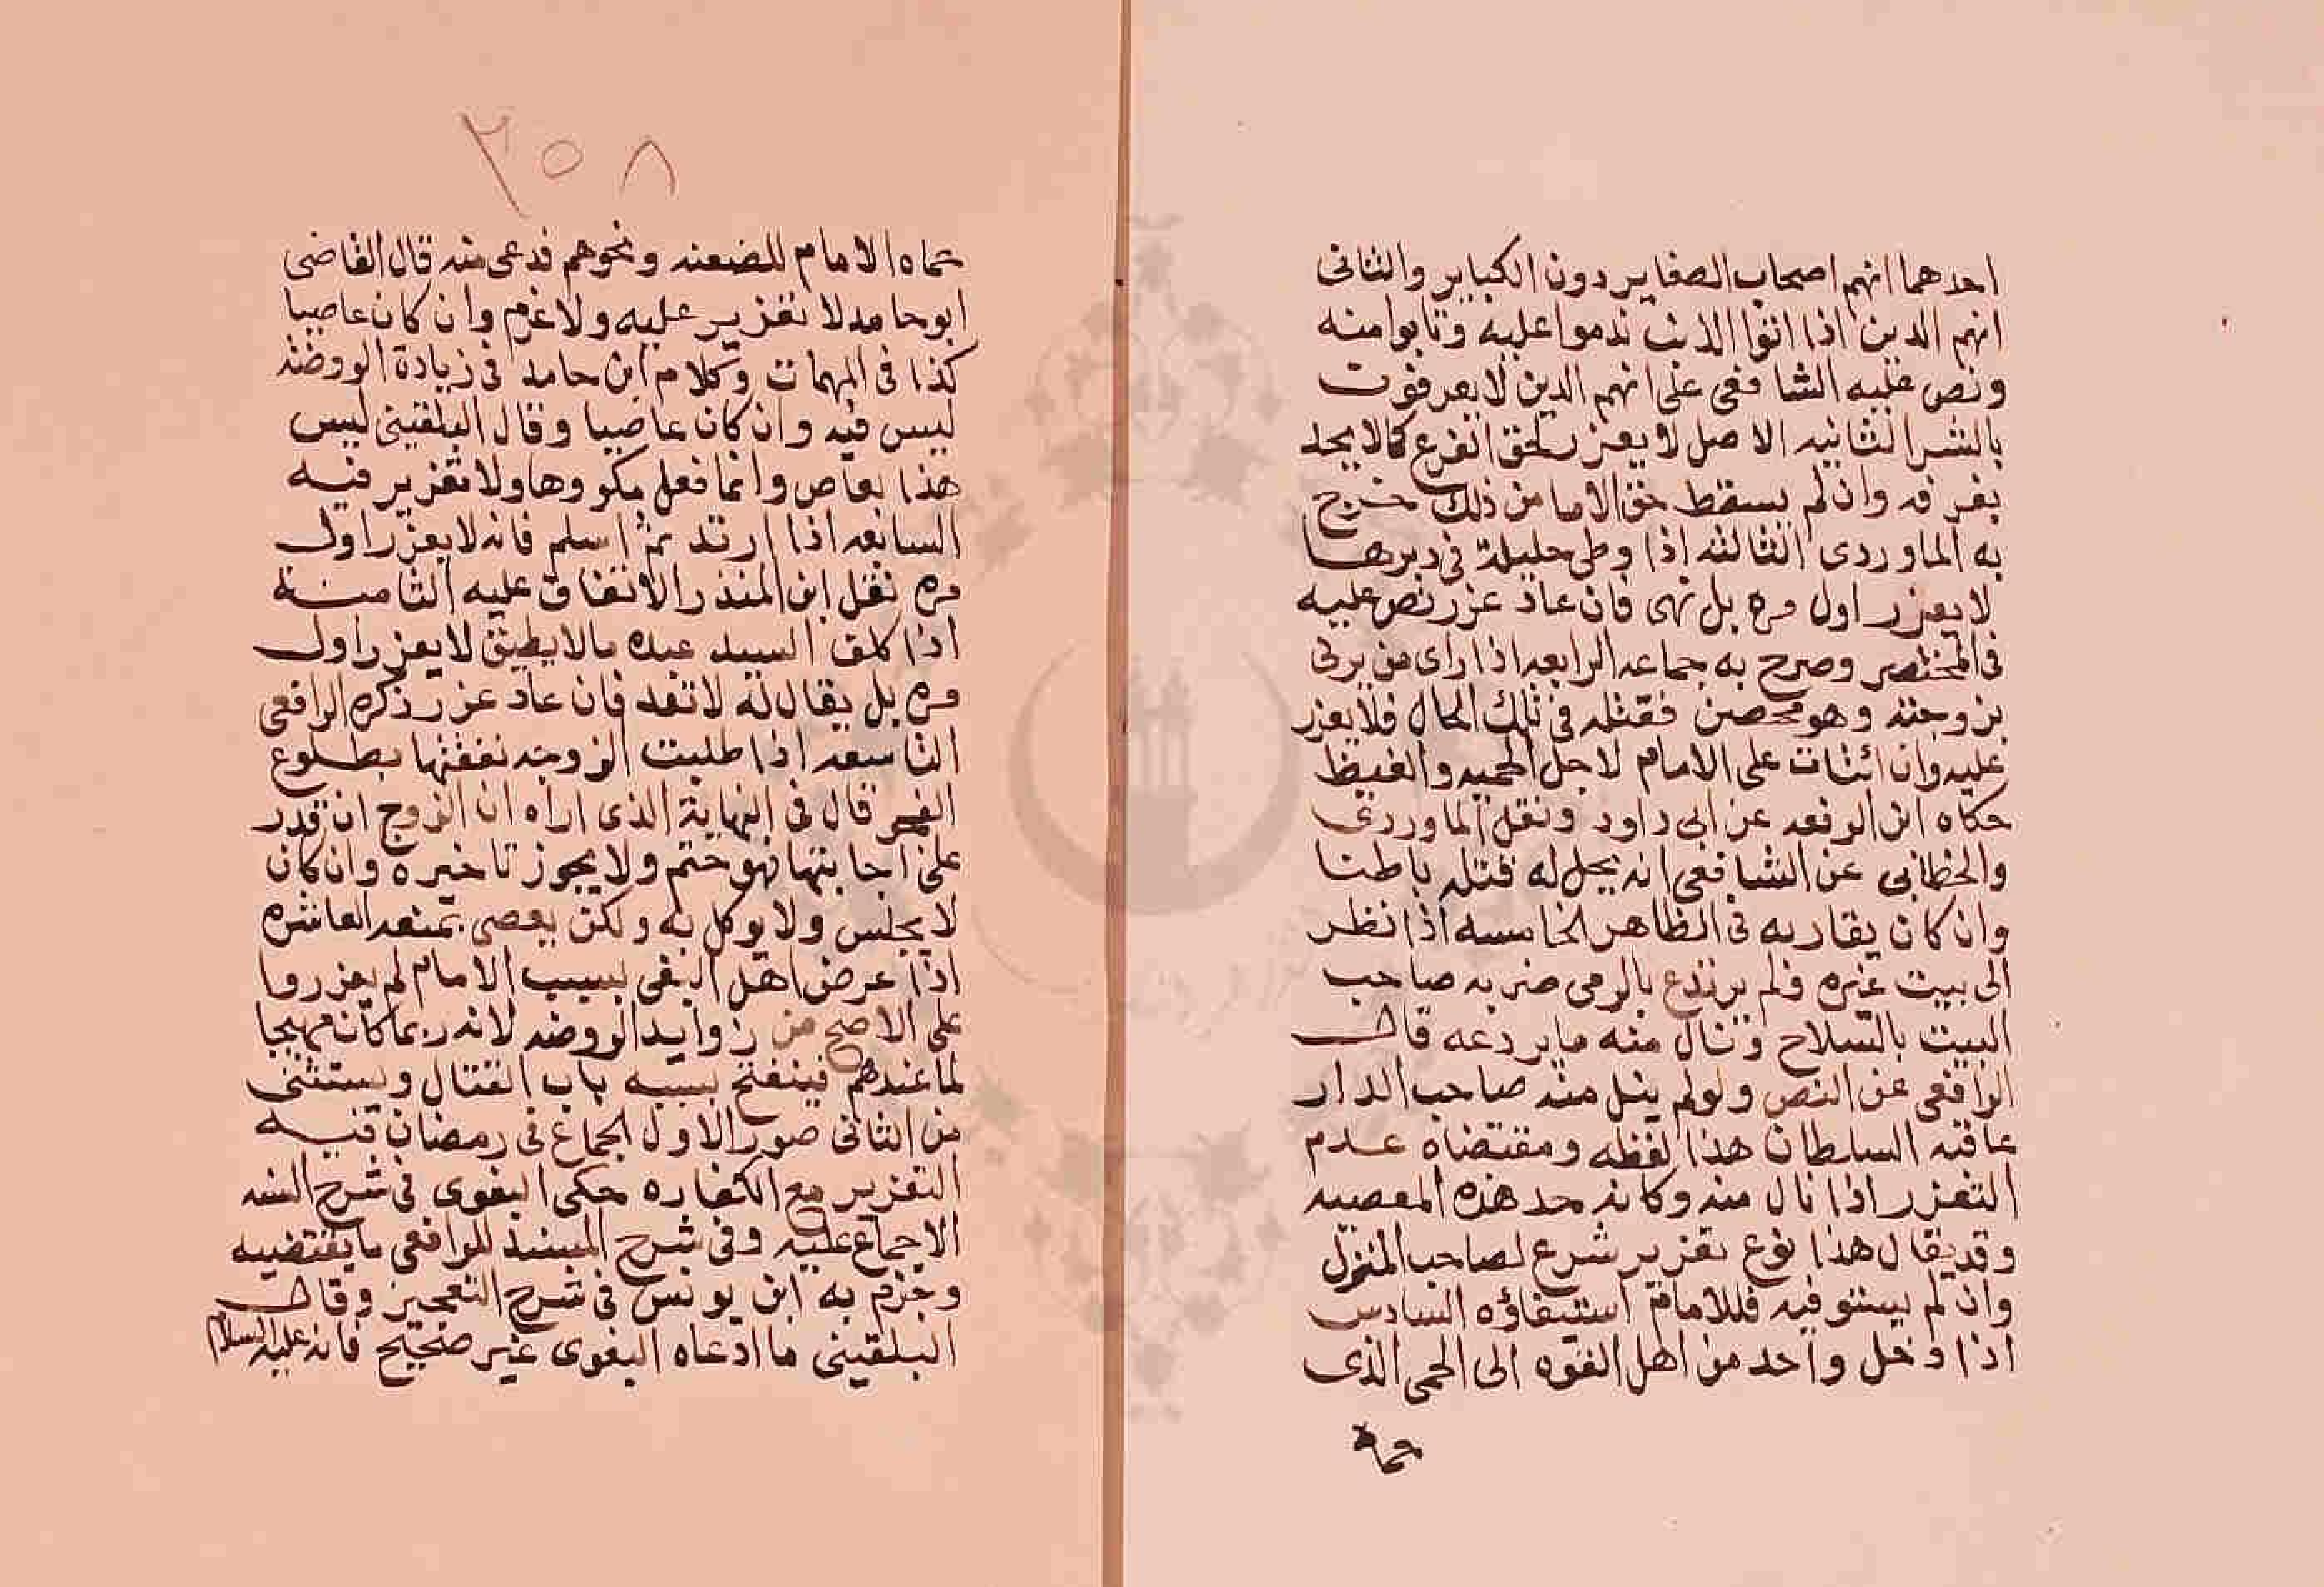 احدهما انهم اصحاب الصغاير دون الكباير والثانى
انهم الدين اذا اتوا الذنب ندموا عليه وتابوا منه
ونص عليه الشافعى على انهم الدين لا يعرفون
بالشر الثانيه الاصل لا يعزر لحق الفرع كما لا يحد
بقذفه وان لم يسقط حق الامام من ذلك خرج
به الماوردى الثالثه اذا وطى حليلة فى دبرها
لا يعزر اول مره بل نهى فان عاد عزر نص عليه
فى المختصر وصرح به جماعه الرابعه اذا راى من يزنى
بزوجته وهو محصن فقتله فى تلك الحال فلا يعزر
عليه وان افتات على الامام لاجل الحميه والغيظ
حكاه ابن الرفعه عن ابى داود ونقل الماوردى
والخطابى عن الشافعى انه يحل له قتله باطنا
وان كان يقاد به فى الظاهر الخامسه اذا نظر
الى بيت غيره ولم يرتدع بالرمى ضربه صاحب
البيت بالسلاح ونال منه ما يردعه قال
الرافعى عن النص ولو لم ينل منه صاحب الدار
عاقبه السلطان هذا لفظه ومقتضاه عدم
التعزر اذا نال منه وكانه حد هذه المعصيه
وقد يقال هذا نوع تعزير شرع لصاحب المنزل
وان لم يستوفيه فللامام استيفاؤه السادس
اذا دخل واحد من اهل القوه الى الحمى الذى
حماه
٣٥٨
حماه الامام للضعفه ونحوهم فدعى منه قال القاضى
ابو حامد لا تعزير عليه ولا غرم وان كان عاصيا
كذا فى المهمات وكلام ابن حامد فى زيادة الروضه
ليس فيه وان كان عاصيا وقال البلقينى ليس
هذا بعاص وانما فعل مكروها ولا تعزير فيه
السابعه اذا ارتد ثم اسلم فانه لا يعزر اول
مره نقل ابن المنذر الاتفاق عليه الثامنة
اذا كلف السيد عبده مالا يطيق لا يعزر اول
مره بل يقال له لا تعد فان عاد عزر ذكره الرافعى
التاسعه اذا طلبت الزوجه نفقتها بطلوع
الفجر قال فى النهاية الذى اراه ان الزوج ان قدر
على اجابتها فهو حتم ولا يجوز تاخيره وان كان
لا يحبس ولا يوكل به ولكن يعصى بمنعه العاشره
اذا عرض اهل البغى بسبب الامام لم يعزروا
على الاصح من زوايد الروضه لانه ربما كان مهيجا
لما عندهم فينفتح بسببه باب القتال ويستثنى
من الثانى صور الاول الجماع فى رمضان فيه
التعزير مع الكفاره حكى البغوى فى شرح السنه
الاجماع عليه وفى شرح المسند للرافعى ما يقتضيه
وجزم به ابن يونس فى شرح التعجيز وقال
البلقينى ما ادعاه البغوى غير صحيح فانه عليه السلام